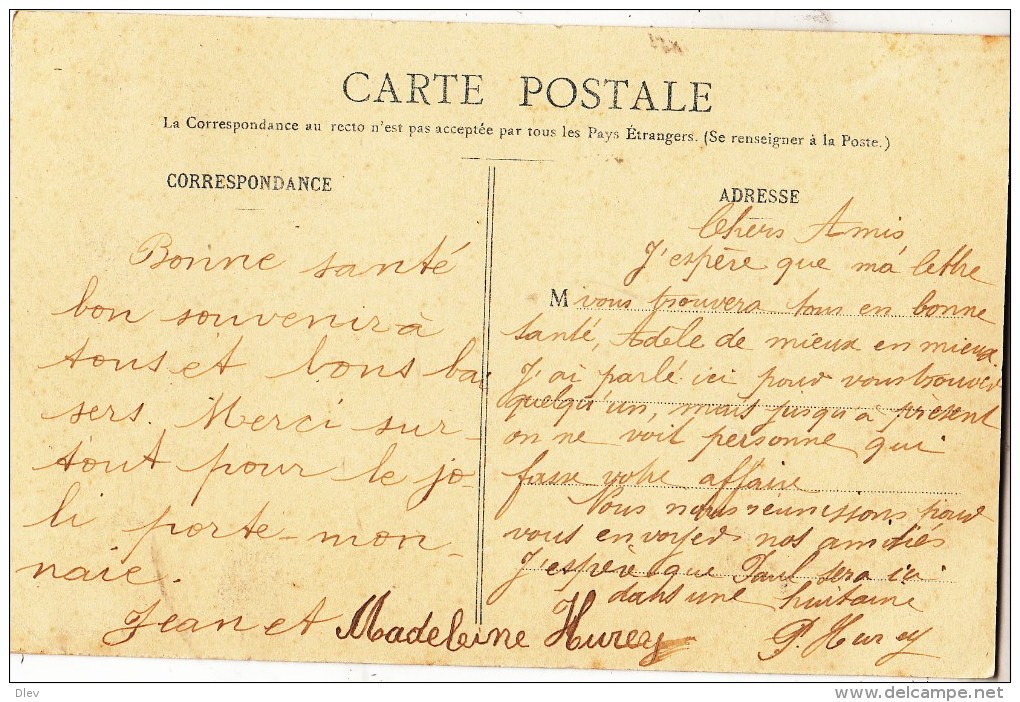 CARTE POSTALE
La Correspondance au recto n'est pas acceptée par tous les Pays Étrangers. (Se renseigner à la Poste.)
CORRESPONDANCE
Bonne santé
bon souvenir à
tous et bons bai
sers. Merci sur-
tout pour le jo-
li porte-mon-
naie.
Jean et Madeleine Hurey
ADRESSE
Chers Amis
J'espère que ma lettre
M vous trouvera tous en bonne
santé, Adèle de mieux en mieux.
J'ai parlé ici pour vous trouver
quelqu'un, mais jusqu'à présent
on ne voit personne qui
fasse votre affaire
Nous nous réunissons pour
vous envoyer nos amitiés
J'espère que Paul sera ici
dans une huitaine
P. Hurey
Dlev
www.delcampe.net